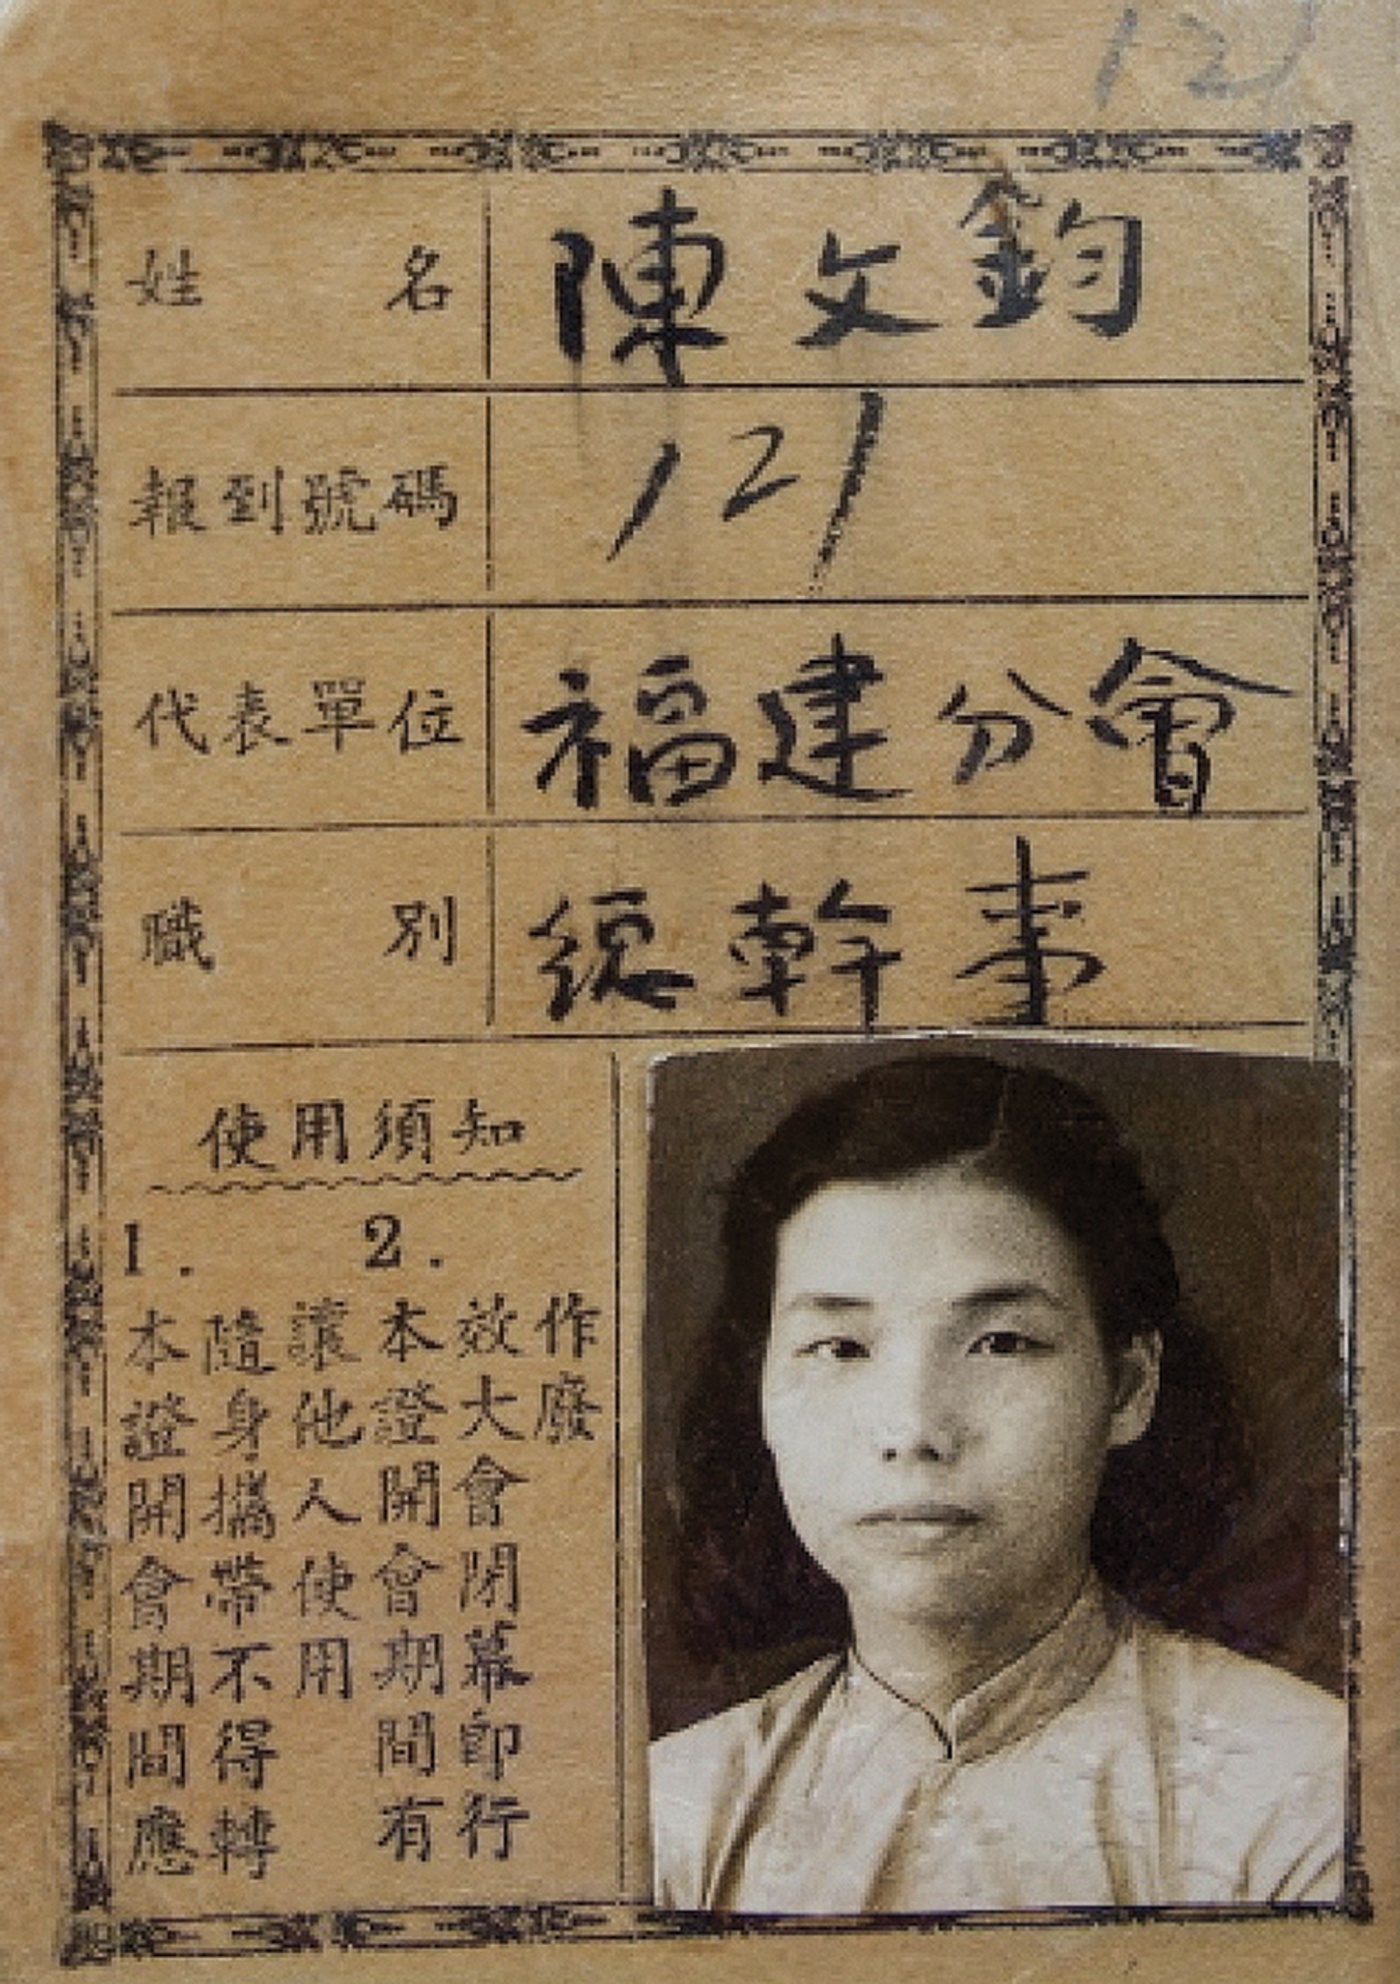 121
姓名 陳文鈞
報到號碼 121
代表單位 福建分會
職別 總幹事
使用須知
1.
本證開會期間應
隨身攜帶不得轉
讓他人使用
2.
本證開會期間有
效大會閉幕即行
作廢